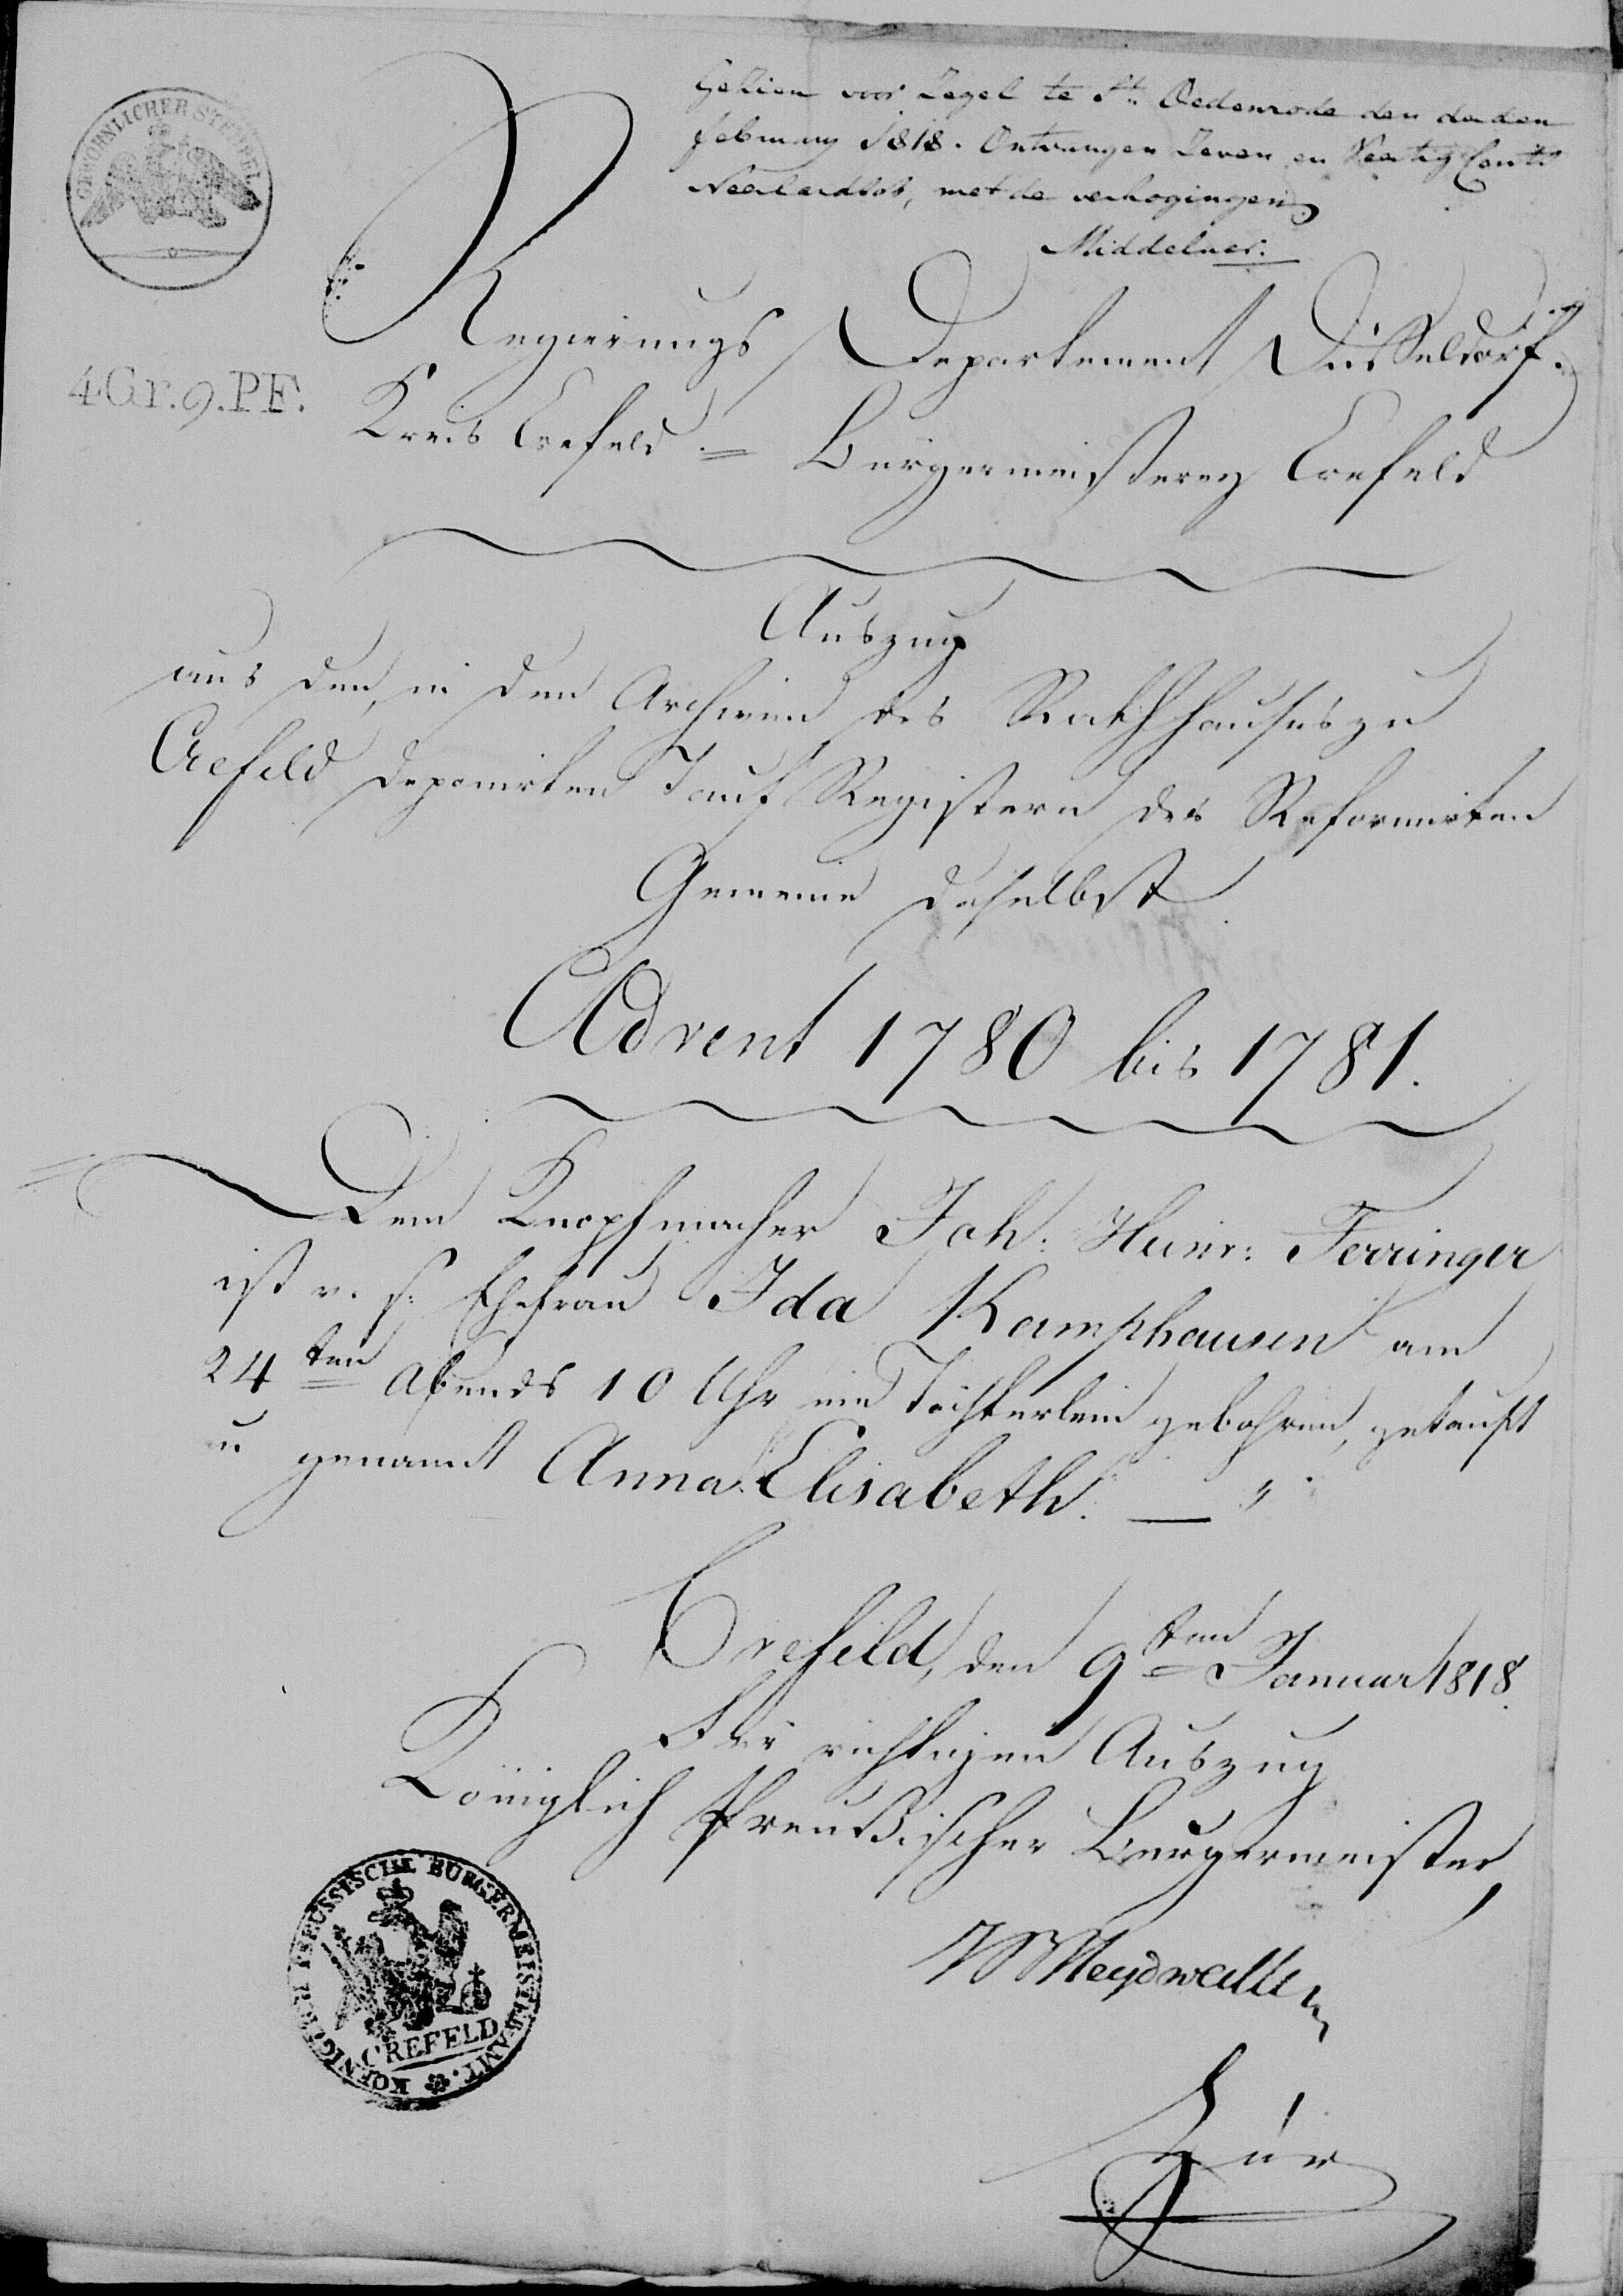 GEWÖHNLICHER STEMPEL
Gezien voor Zegel te St. Oedenrode den
february 1818. Ontvangen Zeven en Veertig Cents
Neerlandsch, met de verhogingen
4 Gr. 9. PF.
Regierungs Departement Düsseldorf.
Kreis Crefeld = Bürgermeisterey Crefeld
Auszug
aus den, in den Archiven des Rathhauses zu
Crefeld deponirten Tauf Registern der Reformirten
Gemeine daselbst
Advent 1780 bis 1781.
Dem Knopfmacher Joh: Heinr: Ferringer
ist v. s: Ehefrau Ida Kamphausen am
24ten Abends 10 Uhr ein Töchterlein gebohren, getauft
u genannt Anna Elisabeth. —
Crefeld, den 9ten Januar 1818.
Für richtigen Auszug
Königlich Preußischer Bürgermeister,
KOENIGLICH PREUSSISCHE BÜRGERMEISTER AMT.
CREFELD